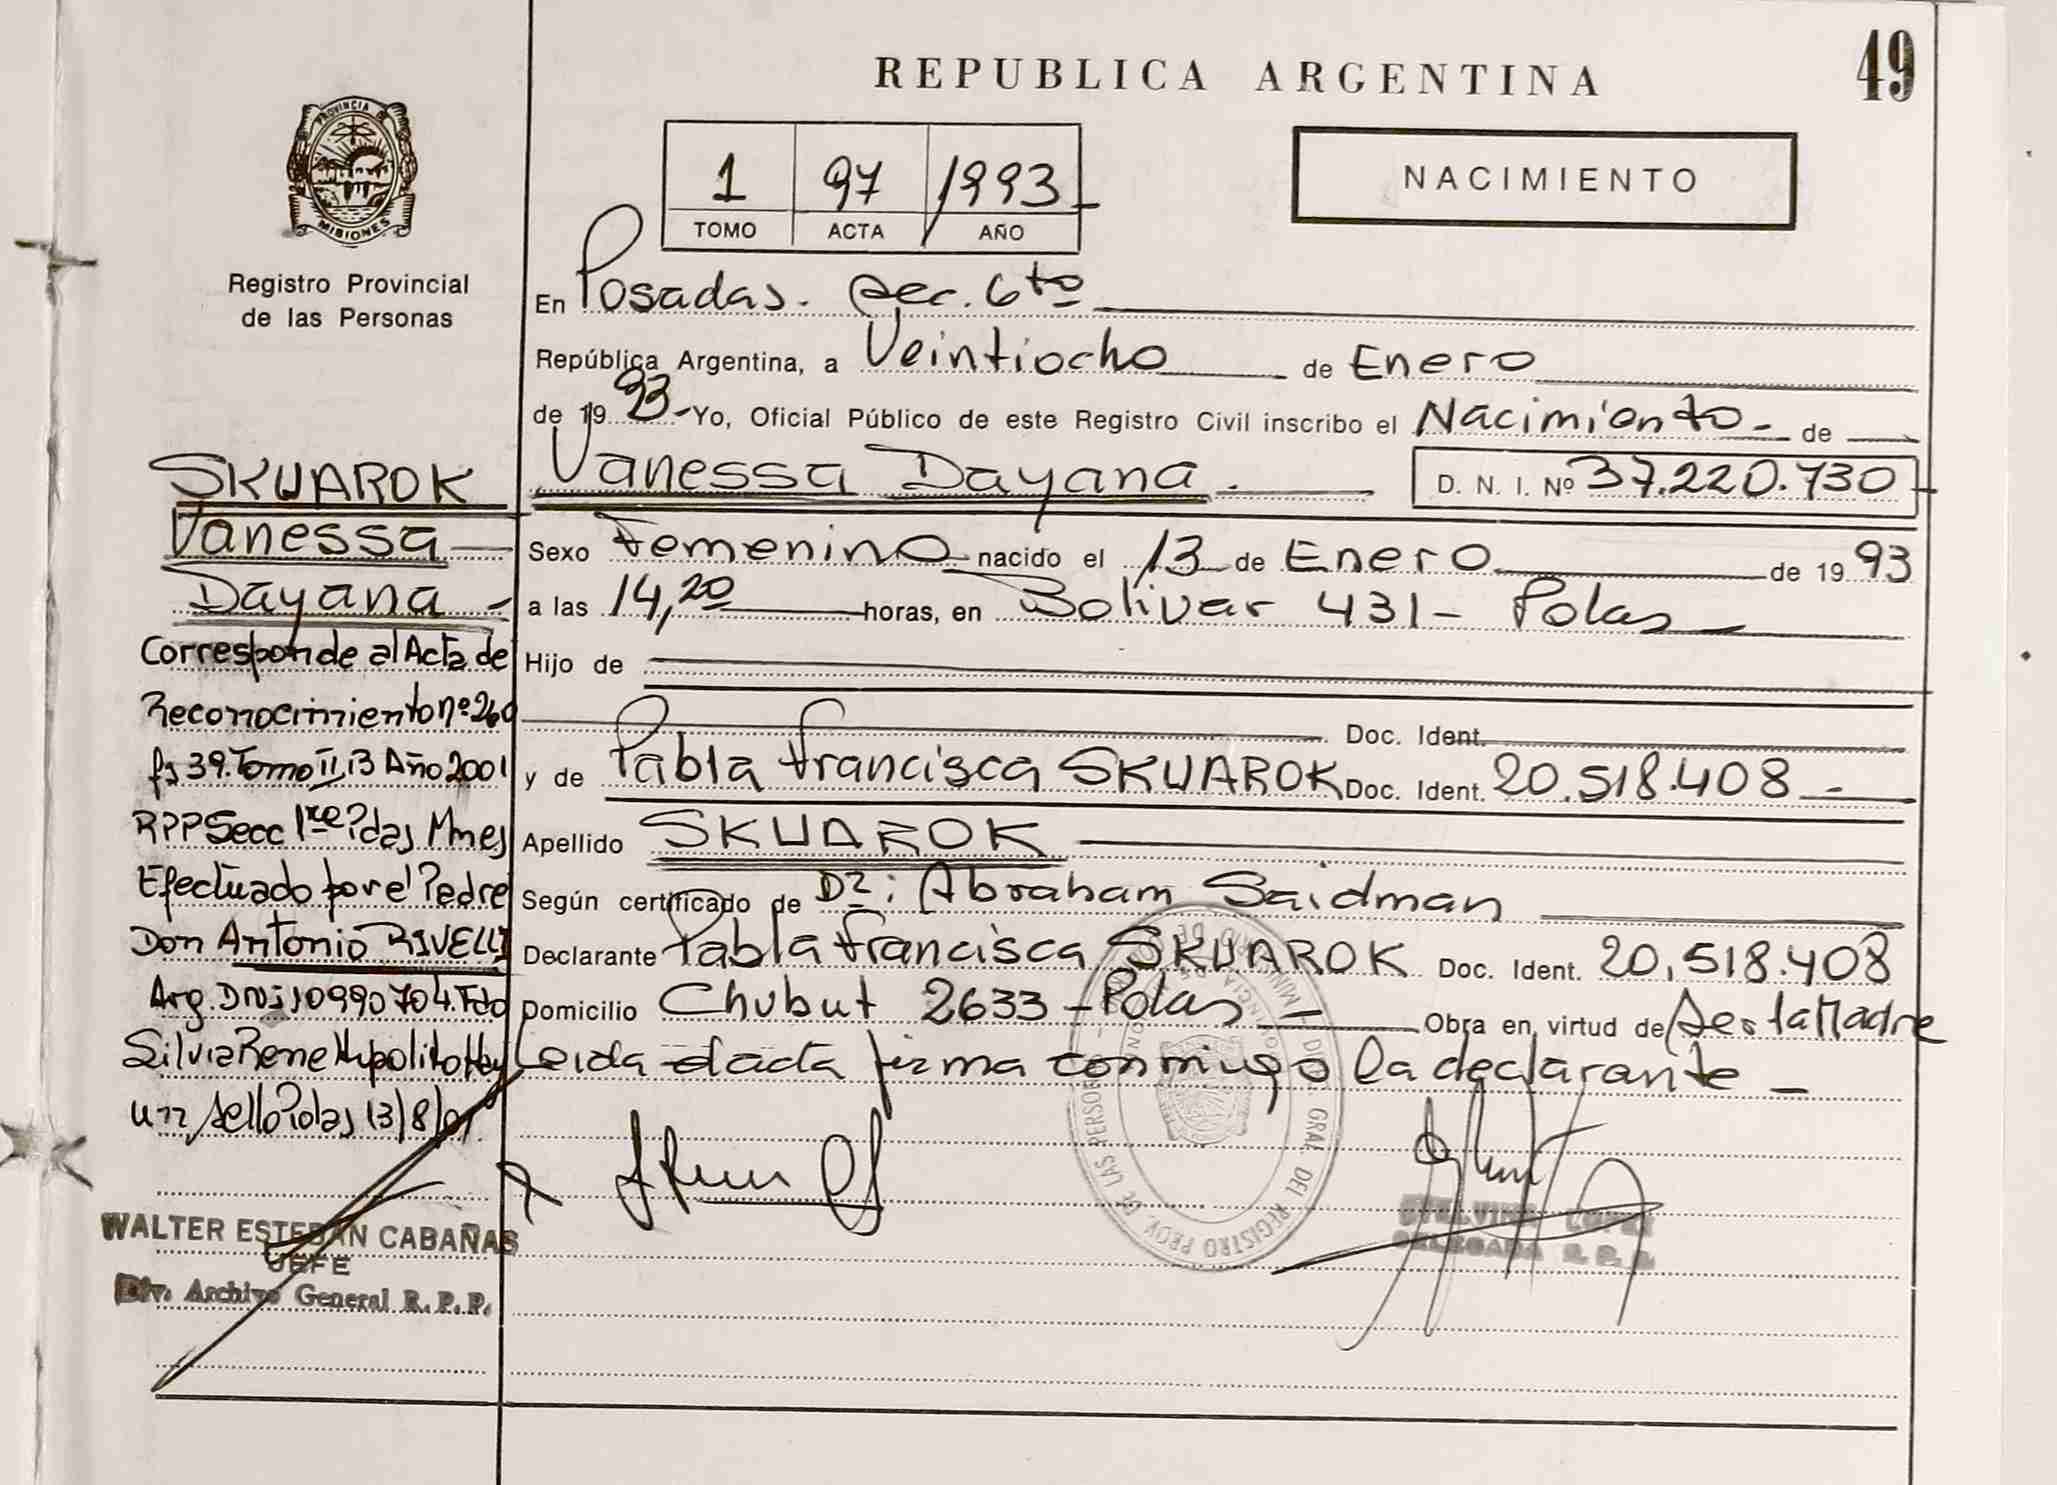 REPUBLICA ARGENTINA
49
PROVINCIA DE
MISIONES
Registro Provincial
de las Personas
1 97 1993
TOMO ACTA AÑO
NACIMIENTO
En Posadas. sec. 6to
República Argentina, a Veintiocho de Enero
de 1993 - Yo, Oficial Público de este Registro Civil inscribo el Nacimiento - de
Vanessa Dayana. D. N. I. Nº 37.220.730
Sexo Femenino nacido el 13 de Enero de 1993
a las 14,20 horas, en Bolivar 431 - Pdas
Hijo de
Doc. Ident.
y de Pabla Francisca SKUAROK Doc. Ident. 20.518.408 -
Apellido SKUAROK
Según certificado de Dr: Abraham Saidman
Declarante Pabla Francisca SKUAROK Doc. Ident. 20.518.408
Domicilio Chubut 2633 - Pdas - Obra en virtud de Ser la Madre
Leida el acta firma conmigo la declarante -
SKUAROK
Vanessa
Dayana -
Corresponde al Acta de
Reconocimiento nº 260
fs 39. Tomo II, 13 Año 2001
RPP Secc 1re Pdas Mnes
Efectuado por el Padre
Don Antonio RIVELLI
Arg. DNI 10990704. Fdo
Silvia Rene Hypolito Hay
un sello Pdas 13/8/01.
WALTER ESTEBAN CABAÑAS
JEFE
Div. Archivo General R. P. P.
DIR. GRAL. DEL REGISTRO PROV. DE LAS PERSONAS